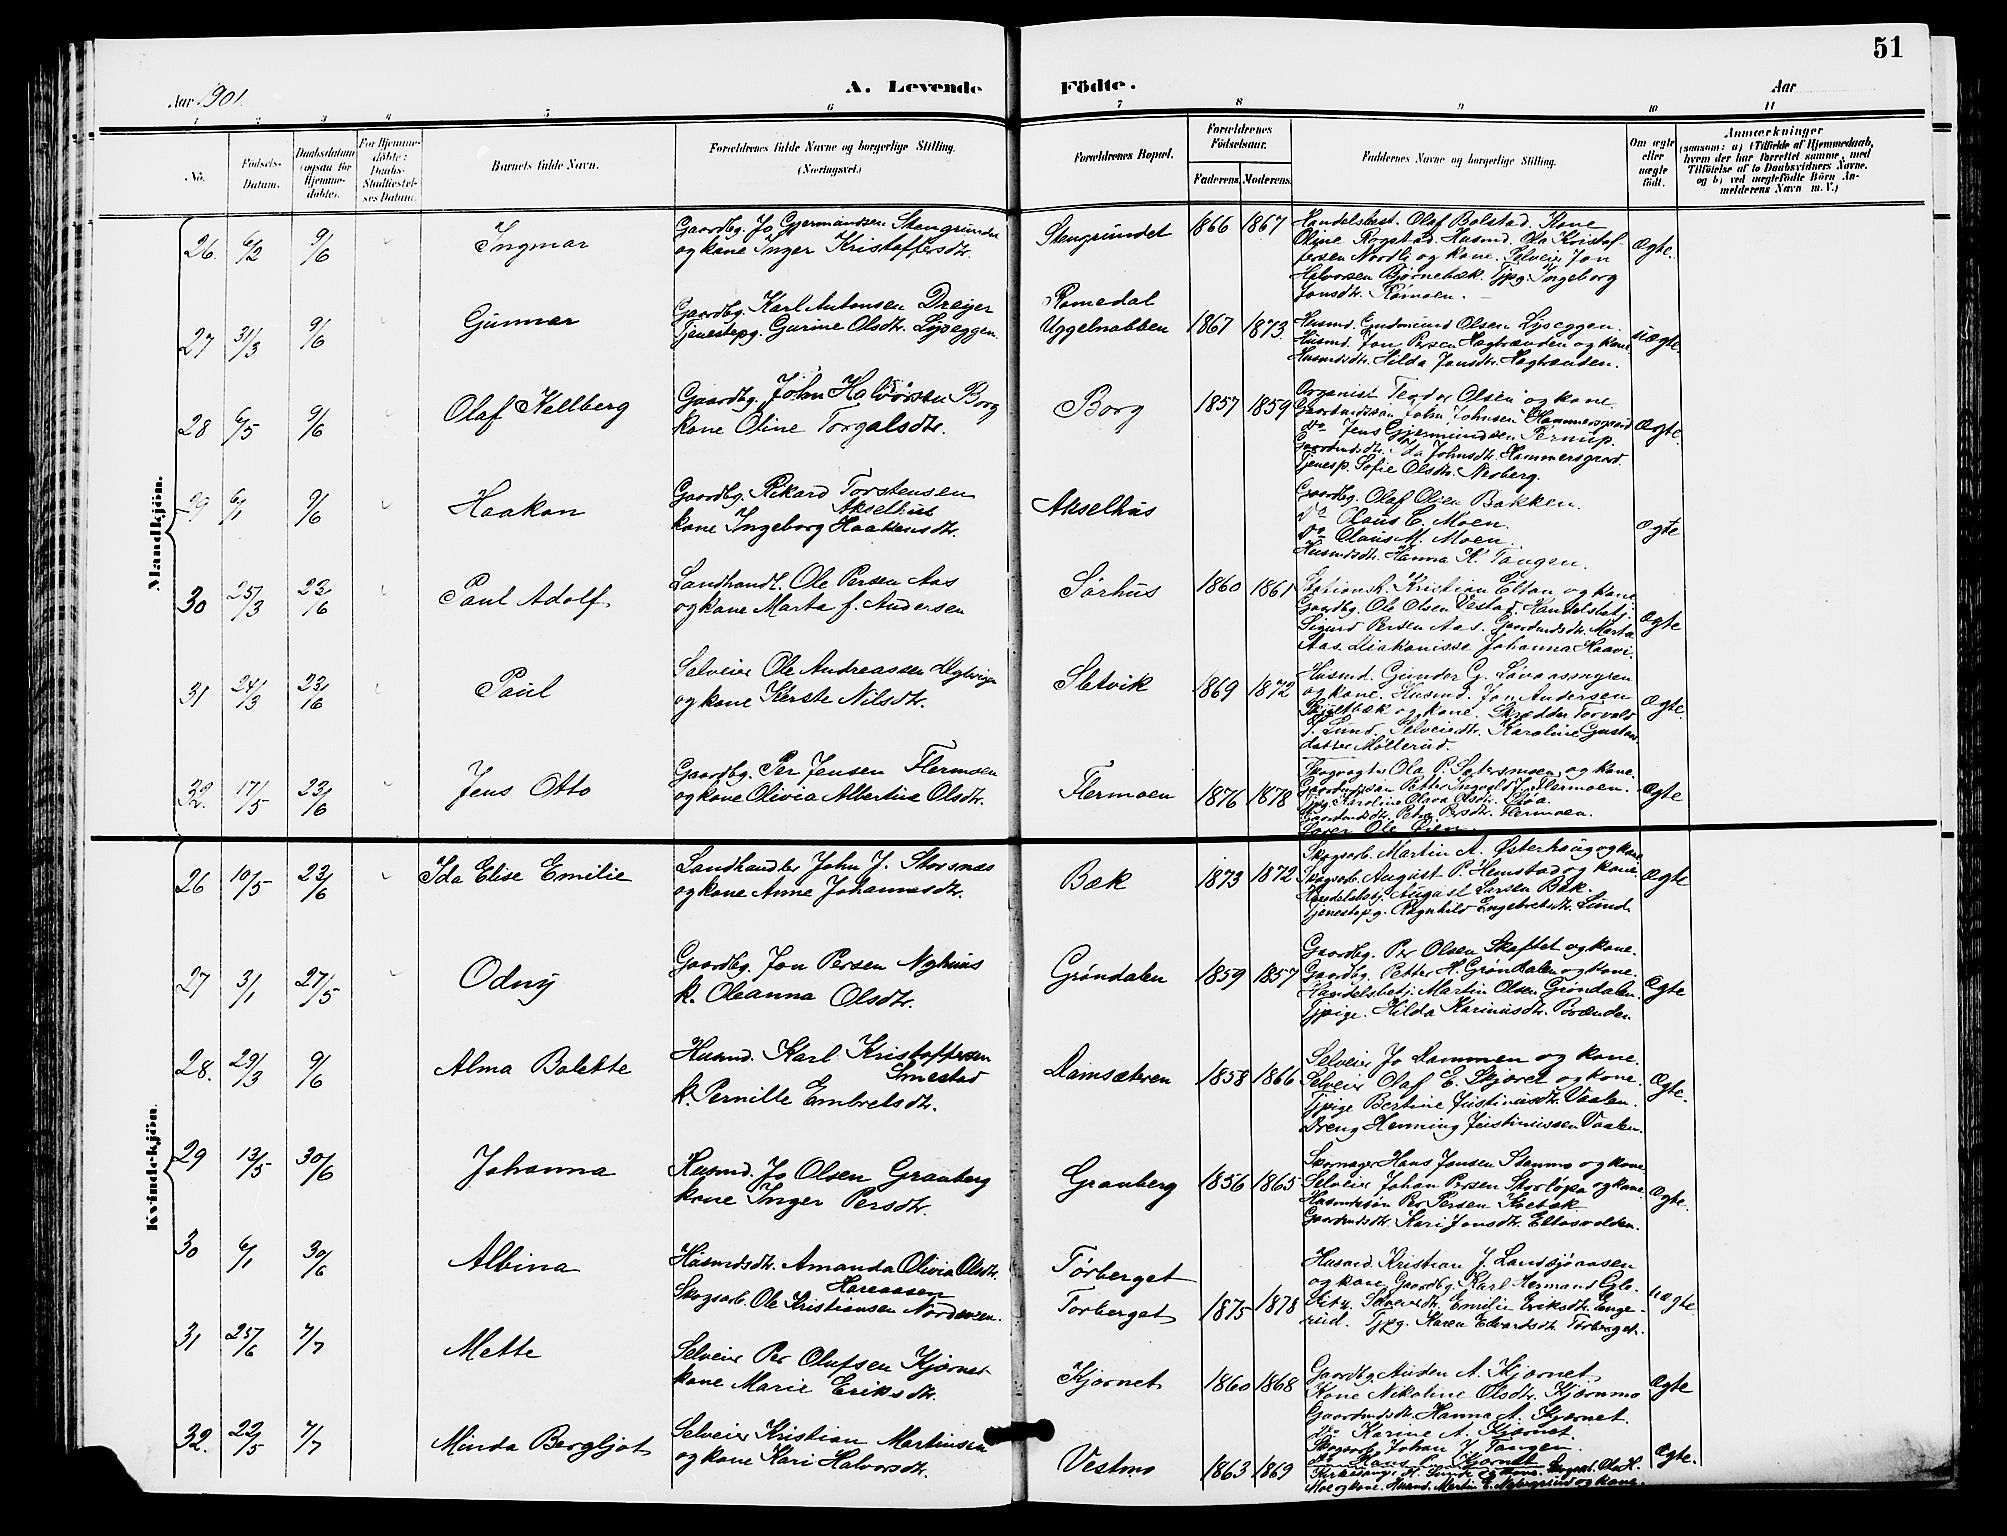 51
Aar 1901.
A. Levende Födte.
Aar
1 2 3 4 5 6 7 8 9 10 11
No.
Födsels-Datum.
Daabsdatum (ogsaa for Hjemmedöbte).
For Hjemmedöbte: Daabs-Stadfæstelses Datum.
Barnets fulde Navn.
Forældrenes fulde Navne og borgerlige Stilling. (Næringsvei.)
Forældrenes Bopæl.
Forældrenes Födselsaar.
Faderens. Moderens.
Faddernes Navne og borgerlige Stilling.
Om ægte eller uægte födt.
Anmærkninger
(saasom: a) i Tilfælde af Hjemmedaab,
hvem der har forrettet samme, med
Tilföielse af to Daabsvidners Navne.
og b) ved uægtefödte Börn An-
melderens Navn m. V.)
Mandkjön.
26. 6/2 9/6 Ingmar
Gaardbg. Jo Gjermundsen Stangrundet
og kone Inger Kristoffersdtr.
Stangrundet 1866 1867
Handelsbest. Olaf Bolstad. Kone
Oline Rogstad. Husmd. Ola Kristof-
fersen Nordli og kone. Selveier Jon
Halvorsen Bjørnebæk. Tjpg. Ingeborg
Jonsdtr. Rømoen.
Ægte.
27 31/3 9/6 Gunnar
Gaardbg. Karl Antonsen Dreyer
Tjenestepg. Gurine Olsdtr. Lyseggen.
Romedal
Uggelnabben 1867 1873
Husmd. Gudmund Olsen Lyseggen.
Husmd. Jon Persen Hagbrænden og kone
Husmdsdtr. Hilda Jonsdtr. Hagbrænden.
Uægte.
28 6/5 9/6 Olaf Kellberg
Gaardbg. John Halvorsen Borg
kone Oline Torgalsdtr.
Borg 1857 1859
Organist Teodor Olsen og kone.
Gaardmdssøn John Johnsen Hammersgaard
do Jens Gjermundsen Pernup.
Gaardmdsdtr. Ida Johnsdtr. Hammersgaard.
Tjenesp. Sofie Olsdtr. Norberg.
Ægte.
29 6/1 9/6 Haakon
Gaardbg. Rikard Torstensen
Akselhus
kone Ingeborg Haakensdtr.
Akselhus
Gaardbg. Olaf Olsen Bakken.
do Olaus E. Moen.
do Olaus M. Moen.
Husmdsdtr. Hanna K. Tangen.
Ægte
30 25/3 23/6 Paul Adolf
Landhandl. Ole Persen Aas
og kone Marta f. Andersen
Sørhus 1860 1861
Stationsh. Kristian Elton og kone
Gaardbg. Ole Olsen Vestad. Handelsbetj.
Sigurd Persen Aas. Gaardmdsdtr. Marta
Aas. Diakonisse Johanna Haavi.
Ægte
31 24/3 23/6 Paul
Selveier Ole Andreassen
og kone Kerste Nilsdtr.
Sletvik 1869 1872
Husmd. Gunder G. Lövaasmyren
og kone. Husmd. Jon Andersen
Skjeltbæk og kone. Skrædder Torvald
P. Lund. Selveierdtr. Karoline Gustavs
datter Møllerud.
Ægte.
32. 17/5 23/6 Jens Otto
Gaardbg. Per Jensen Flermoen
og kone Olivia Albertine Olsdtr.
Flermoen 1876 1878
Skogvogter Ola P. Sætersmoen og kone.
Gaardmdssøn Petter Ingvald J. Flermoen.
Tjpg. Karoline Olava Olsdtr. Ljøa.
Gaardmdsdtr. Petra Persdtr. Flermoen.
Ægte
Kvindekjön.
26 10/5 23/6 Ida Elise Emilie
Landhandler John J. Storsnæs
og kone Anne Johannesdtr.
Bæk 1873 1872
Skogsarb. Martin A. Østerhaug og kone
Skogsarb. August P. Hemstad og kone.
Handelsbetj. August Larsen Bæk.
Tjenestepg. Ragnhild Engebretsdtr. Lund.
Ægte
27 3/1 27/5 Odny
Gaardbg. Jon Persen Nyhuus
k. Oleanna Olsdtr.
Grøndalen 1859 1857
Gaardbg. Per Olsen Skaftet og kone.
Gaardbg. Petter H. Grøndalen og kone.
Handelsbetj. Martin Olsen Grøndalen.
Tjpige. Hilda Karinusdtr. Brænden.
Ægte
28. 29/3 9/6 Alma Bolette
Husmd. Karl Kristoffersen
Smestad
k. Pernille Embretsdtr.
Damsæteren 1858 1866
Selveier Jo Dammen og kone.
Selveier Olaf E. Skjæret og kone.
Tjpige Bertine Justinusdtr. Vaalen.
Dreng Henning Justinussen Vaalen.
Ægte.
29 13/5 30/6 Johanna
Husmd. Jo Olsen Granberg
kone Inger Persdtr.
Granberg 1856 1865
Skomager Hans Jonsen Stenmo og kone
Selveier Johan Persen Storløpa og kone.
Husmdssøn Per Persen Kvebæk
Gaardmdsdtr. Kari Jonsdtr. Eltosvolden.
Ægte.
30 6/1 30/6 Albina
Husmdsdtr. Amanda Olivia Olsdtr.
Hareaasen
Skogsarb. Ole Kristiansen Nordsveen.
Tørberget
Tørberget 1875 1878
Husmd. Kristian J. Landsjøaasen
og kone. Gaardbg. Karl Hermand Gle-
Selveierdtr. Emilie Eriksdtr. Enge-
rud. Tjpg. Karen Edvardsdtr. Tørberget.
Uægte
31 25/6 7/7 Mette
Selveier Per Olufsen Kjørnet
kone Marie Eriksdtr.
Kjørnet 1860 1868
Gaardbg. Auden A. Kjørnet.
Kone Nikoline Olsdtr. Kjærnmo
Gaardmdsdtr. Hanna A. Kjørnet.
do Karine A. Kjørnet.
Ægte
32. 22/5 7/7 Minda Bergljot
Selveier Kristian Martinsen
og kone Kari Halvorsdtr.
Vestmo 1863 1869
Skogsarb. Johan J. Tangen.
do Hans P. Kjørnet
Moe og kone. Husmd. Martin E. Nybergsund og kone.
Ægte.